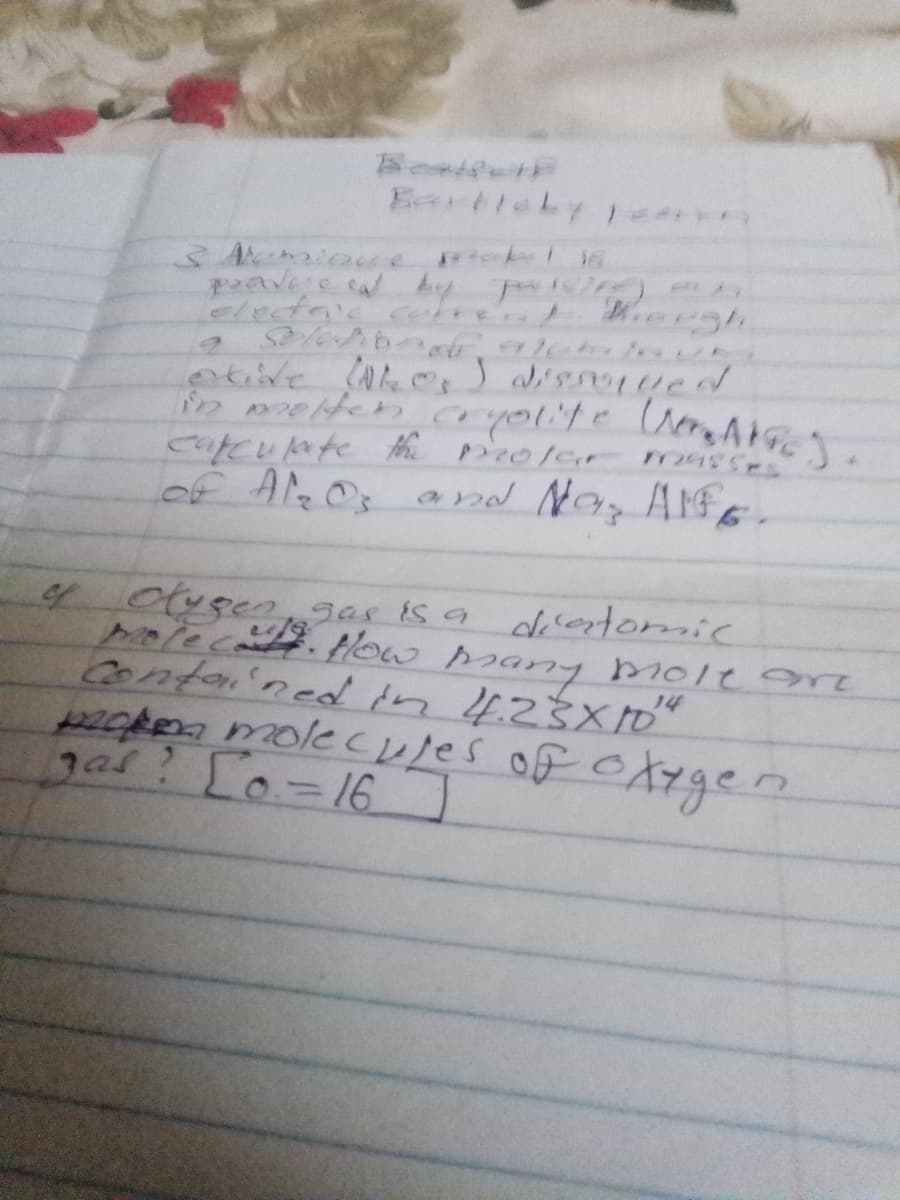 Bartleby learn
3 Aluminium metal is
produced by passing an
electric current through
a Solution of aluminum
oxide (Al₂O₃) dissolved
in molten cryolite (Na₃AlF₆).
calculate the molar masses
of Al₂O₃ and Na₃AlF₆.
Oxygen gas is a diatomic
molecule. How many mole are
Contained in 4.23x10¹⁴
molecules of oxygen
gas? [O.=16]